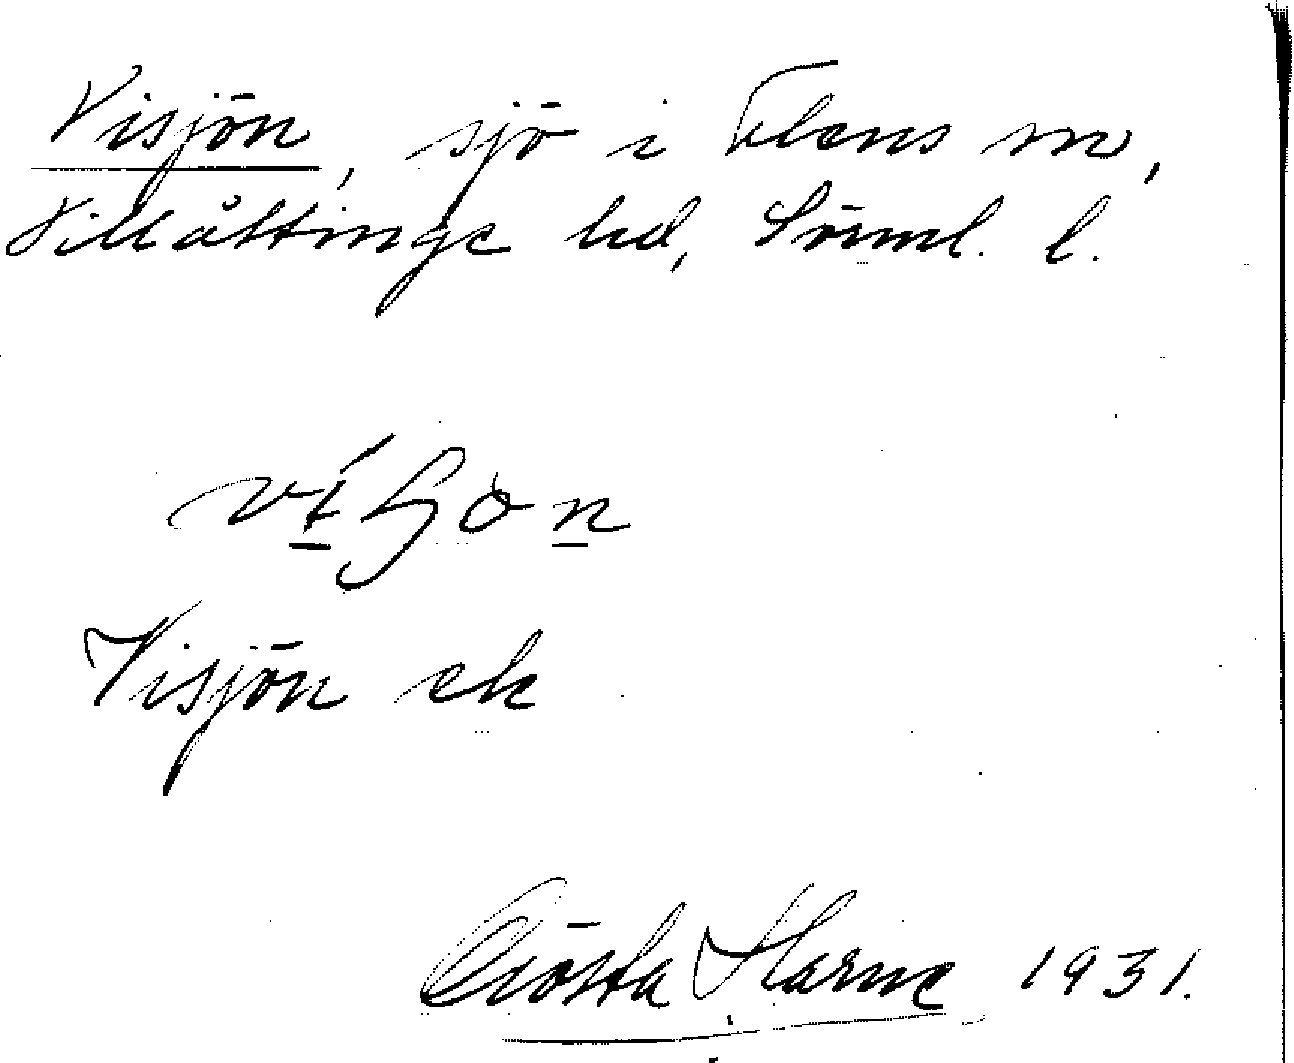 Visjön, sjö i Flens sn,
Villåttinge hd, Sörml. l.
Visjön ek
Gösta Harne 1931.